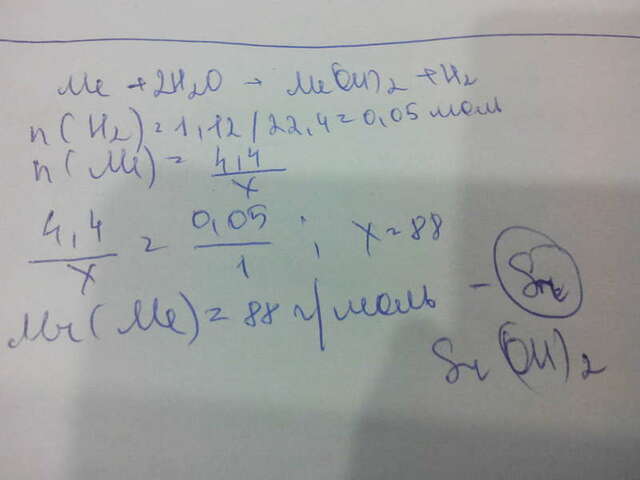 Me + 2H2O → Me(OH)2 + H2
n(H2) = 1,12/22,4 = 0,05 моль
n(Me) = 4,4/x
4,4/x = 0,05/1 ; x = 88
Mr(Me) = 88 г/моль - Sr
Sr(OH)2